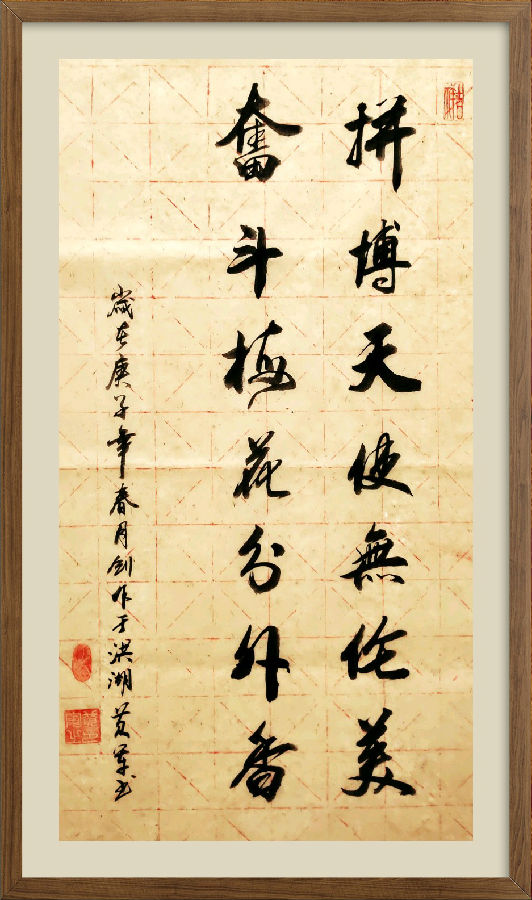 拼搏天使無伦美
奮斗梅花分外香
歲在庚子年春月创作于洪湖黄军书